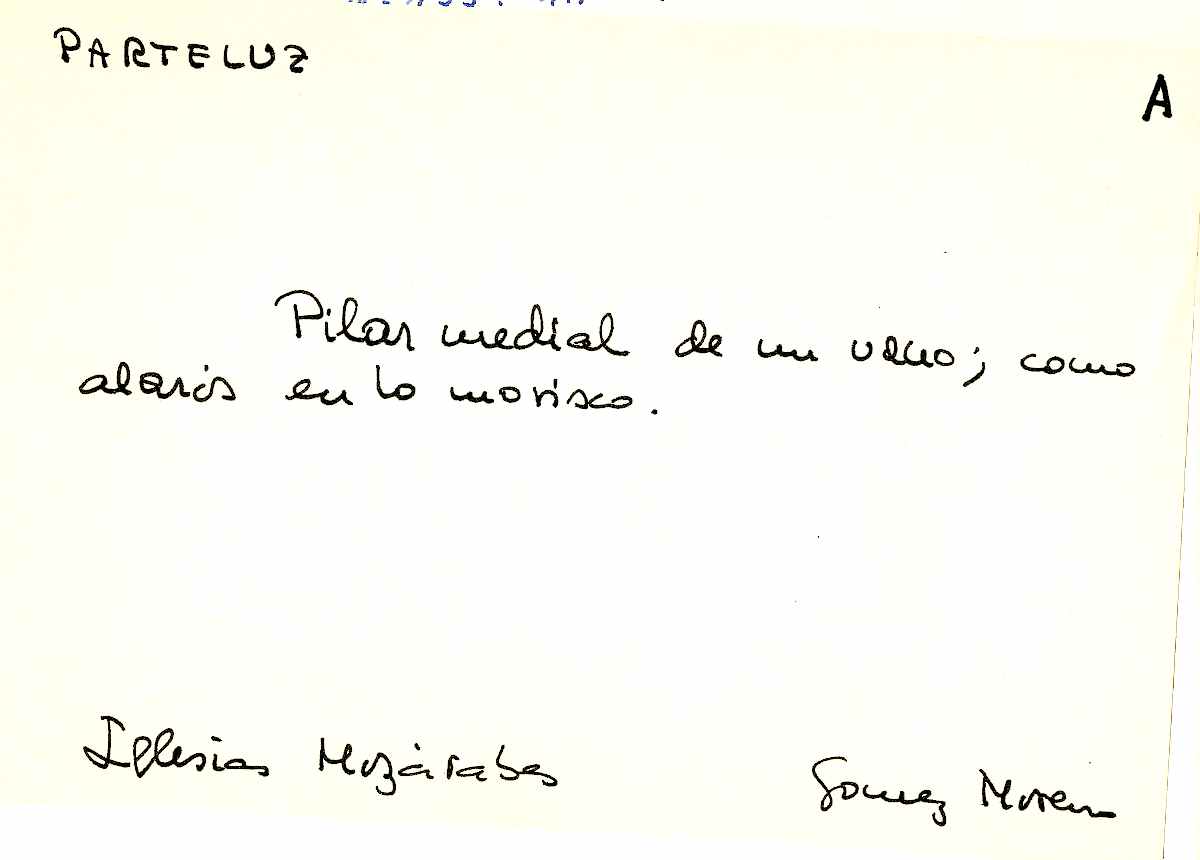 PARTELUZ
A
Pilar medial de un vano; como
alaris en lo morisco.
Iglesias Mozárabes
Gomez Moreno